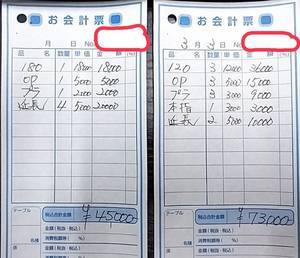 お会計票
月 日 No.
品名 数量 単価 金額
180 1 18000 18000
OP 1 5000 5000
プラ 1 2000 2000
延長 4 5000 20000
テーブル
税込合計金額 ¥45000
金額(税抜・税込)
消費税額等( %)
金額(税抜・税込)
消費税額等( %)
名様
お会計票
3月3日 No.
品名 数量 単価 金額
120 3 12000 36000
OP 3 5000 15000
プラ 3 3000 9000
本指 1 3000 3000
延長 2 5000 10000
テーブル
税込合計金額 ¥73000
金額(税抜・税込)
消費税額等( %)
金額(税抜・税込)
消費税額等( %)
名様